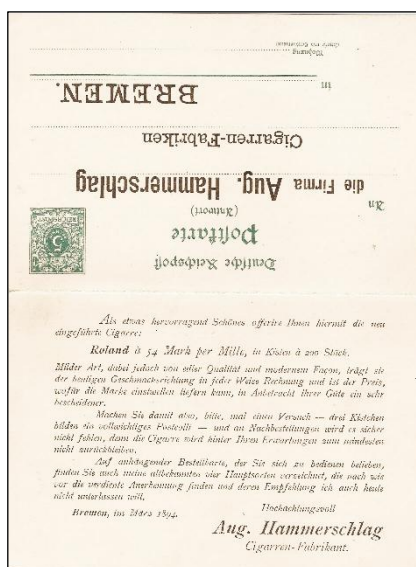 Deutsche Reichspost
Postkarte
(Antwort)
An
die Firma Aug. Hammerschlag
Cigarren-Fabriken
in
BREMEN.
Wohnung
REICHSPOST
5
Als etwas hervorragend Schönes offerire Ihnen hiermit die neu
eingeführte Cigarre:
Roland à 54 Mark per Mille, in Kisten à 200 Stück.
Milder Art, dabei jedoch von edler Qualität und modernem Façon, trägt sie
der heutigen Geschmacksrichtung in jeder Weise Rechnung und ist der Preis,
wofür die Marke einstweilen liefern kann, in Anbetracht ihrer Güte ein sehr
bescheidener.
Machen Sie damit aber, bitte, mal einen Versuch — drei Kistchen
bilden ein vollwichtiges Postcolli — und an Nachbestellungen wird es sicher
nicht fehlen, denn die Cigarre wird hinter Ihren Erwartungen zum mindesten
nicht zurückbleiben.
Auf anhängender Bestellkarte, der Sie sich zu bedienen belieben,
finden Sie auch meine altbekannten vier Hauptsorten verzeichnet, die nach wie
vor die verdiente Anerkennung finden und deren Empfehlung ich auch heute
nicht unterlassen will.
Hochachtungsvoll
Bremen, im März 1894.
Aug. Hammerschlag
Cigarren-Fabrikant.